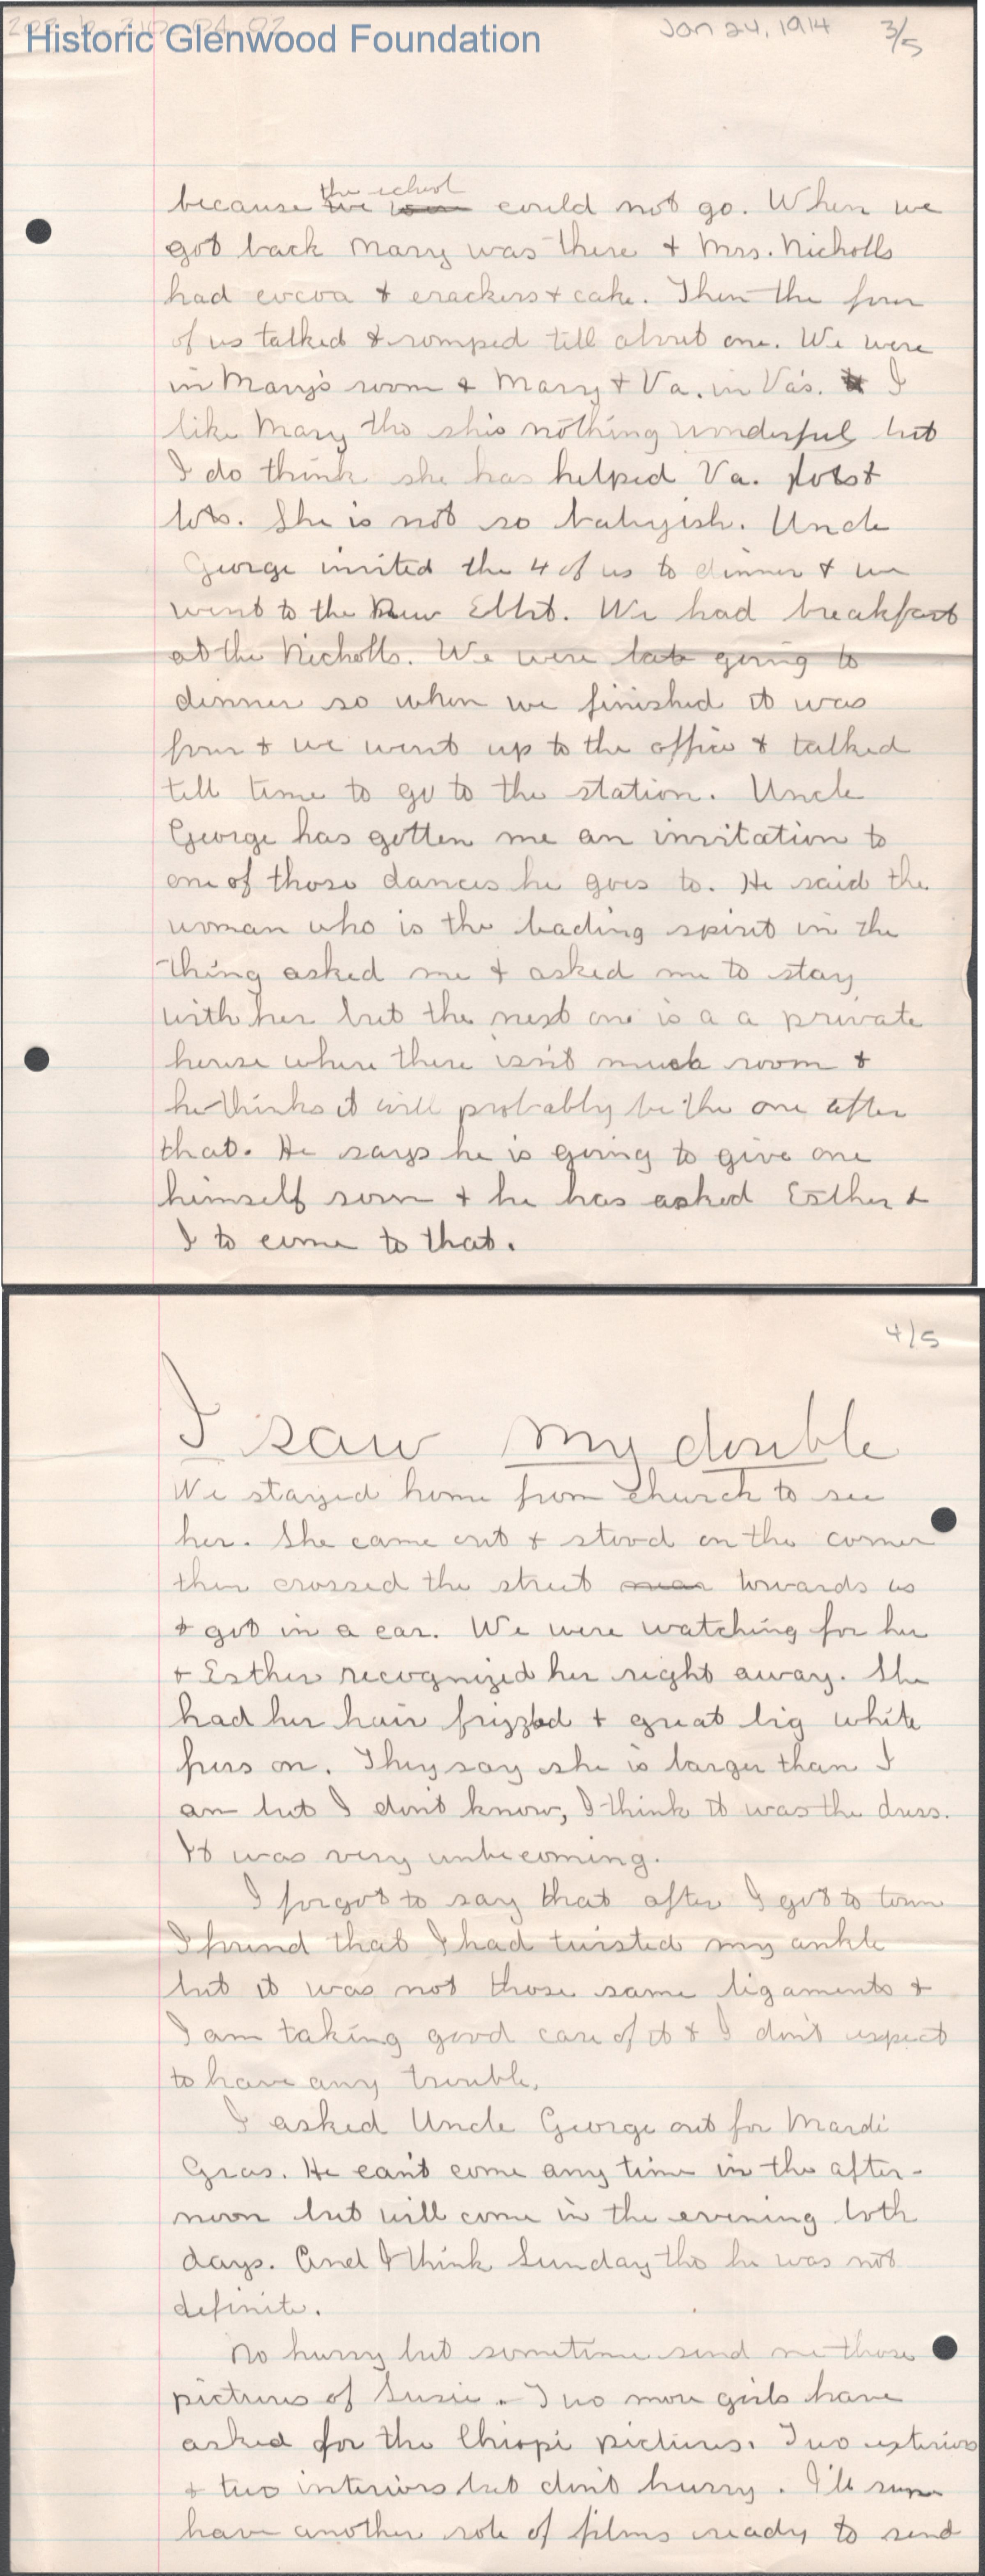 Historic Glenwood Foundation
Jan 24, 1914 3/5
the school
because we were could not go. When we
got back Mary was there & Mrs. Nicholls
had cocoa & crackers & cake. Then the four
of us talked & romped till about one. We were
in Mary's room & Mary & Va. in Va's. I
like Mary tho she's nothing wonderful but
I do think she has helped Va. lots &
lots. She is not so babyish. Uncle
George invited the 4 of us to dinner & we
went to the New Ebbit. We had breakfast
at the Nicholls. We were late going to
dinner so when we finished it was
four & we went up to the office & talked
till time to go to the station. Uncle
George has gotten me an invitation to
one of those dances he goes to. He said the
woman who is the leading spirit in the
thing asked me & asked me to stay
with her but the next one is a a private
house where there isn't much room &
he thinks it will probably be the one after
that. He says he is going to give one
himself soon & he has asked Esther &
I to come to that.
4/5
I saw my double
We stayed home from church to see
her. She came out & stood on the corner
then crossed the street near towards us
& got in a car. We were watching for her
& Esther recognized her right away. She
had her hair frizzled & great big white
furs on. They say she is larger than I
am but I don't know, I think it was the dress.
It was very unbecoming.
I forgot to say that after I got to town
I found that I had twisted my ankle
but it was not those same ligaments &
I am taking good care of it & I don't expect
to have any trouble.
I asked Uncle George out for Mardi
Gras. He can't come any time in the after-
noon but will come in the evening both
days. And I think Sunday tho he was not
definite.
No hurry but sometime send me those
pictures of Susie. Two more girls have
asked for the Chiopi pictures. Two exteriors
& two interiors but don't hurry. I'll soon
have another role of films ready to send